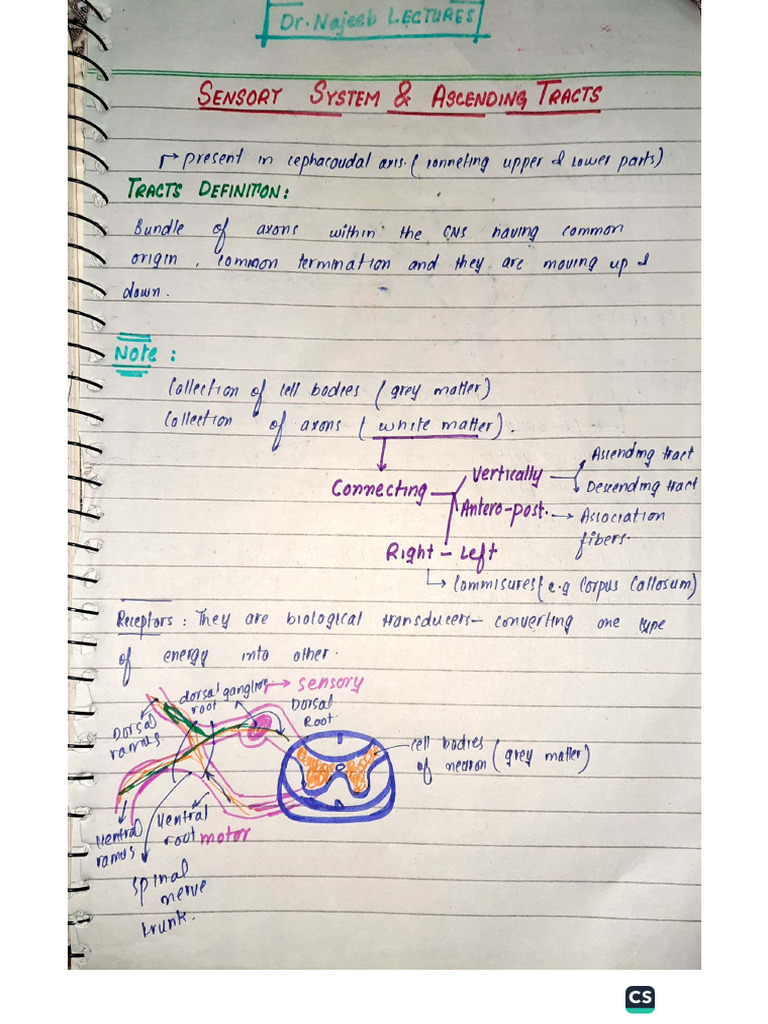 Dr. Najeeb LECTURES
SENSORY SYSTEM & ASCENDING TRACTS
→ present in cephacoudal axis. (conneting upper & lower parts)
TRACTS DEFINITION:
Bundle of axons within the CNS having common
origin, common termination and they are moving up &
down.
Note:
Collection of cell bodies (grey matter)
Collection of axons (white matter).
Connecting
Vertically
Ascending tract
Descending tract
Antero-post. → Association
fibers.
Right - Left
Commisures (e.g Corpus Callosum)
Receptors: They are biological transducers- converting one type
of energy into other.
dorsal ganglion → sensory
root
Dorsal
Root
Dorsal
ramus
cell bodies
of neuron (grey matter)
Ventral
ramus
Ventral
root motor
spinal
nerve
trunk.
CS